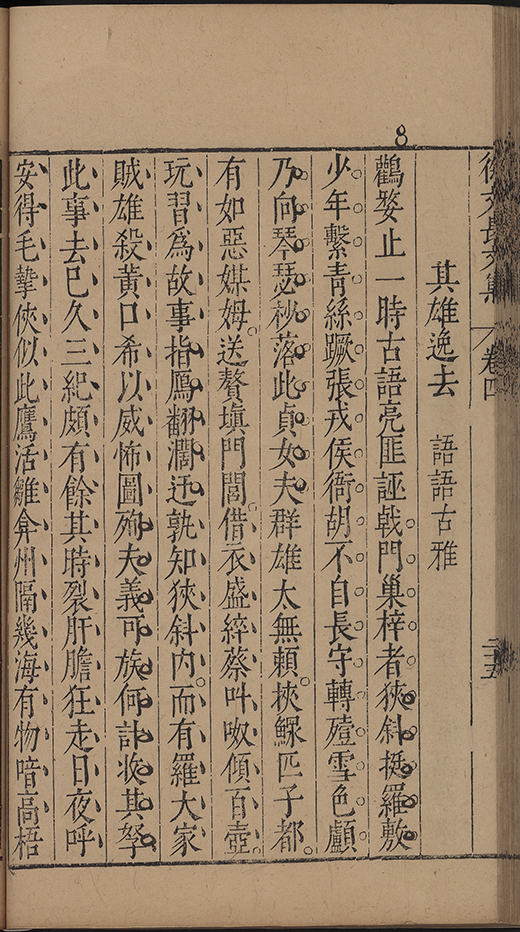 徐文長文集
卷四
二五
8
其雄逸去 語語古雅
鸛婺止一時古語亮匪誣戟門巢梓者狹斜挺羅敷
少年繫青絲蹶張戎侯衙胡不自長守轉殪雪色顱
乃向琴瑟杪落此貞女夫群雄太無賴挾鰥匹子都
有如惡媒姆送贅塡門閭借衣盛綷蔡呌呶傾百壺
玩習爲故事指鴈翻濶迃孰知狹斜內而有羅大家
賊雄殺黃口希以威怖圖殉夫義可族何計收其孥
此事去巳久三紀頗有餘其時裂肝膽狂走日夜呼
安得毛摯俠似此鷹活雛弇州隔幾海有物喑高梧